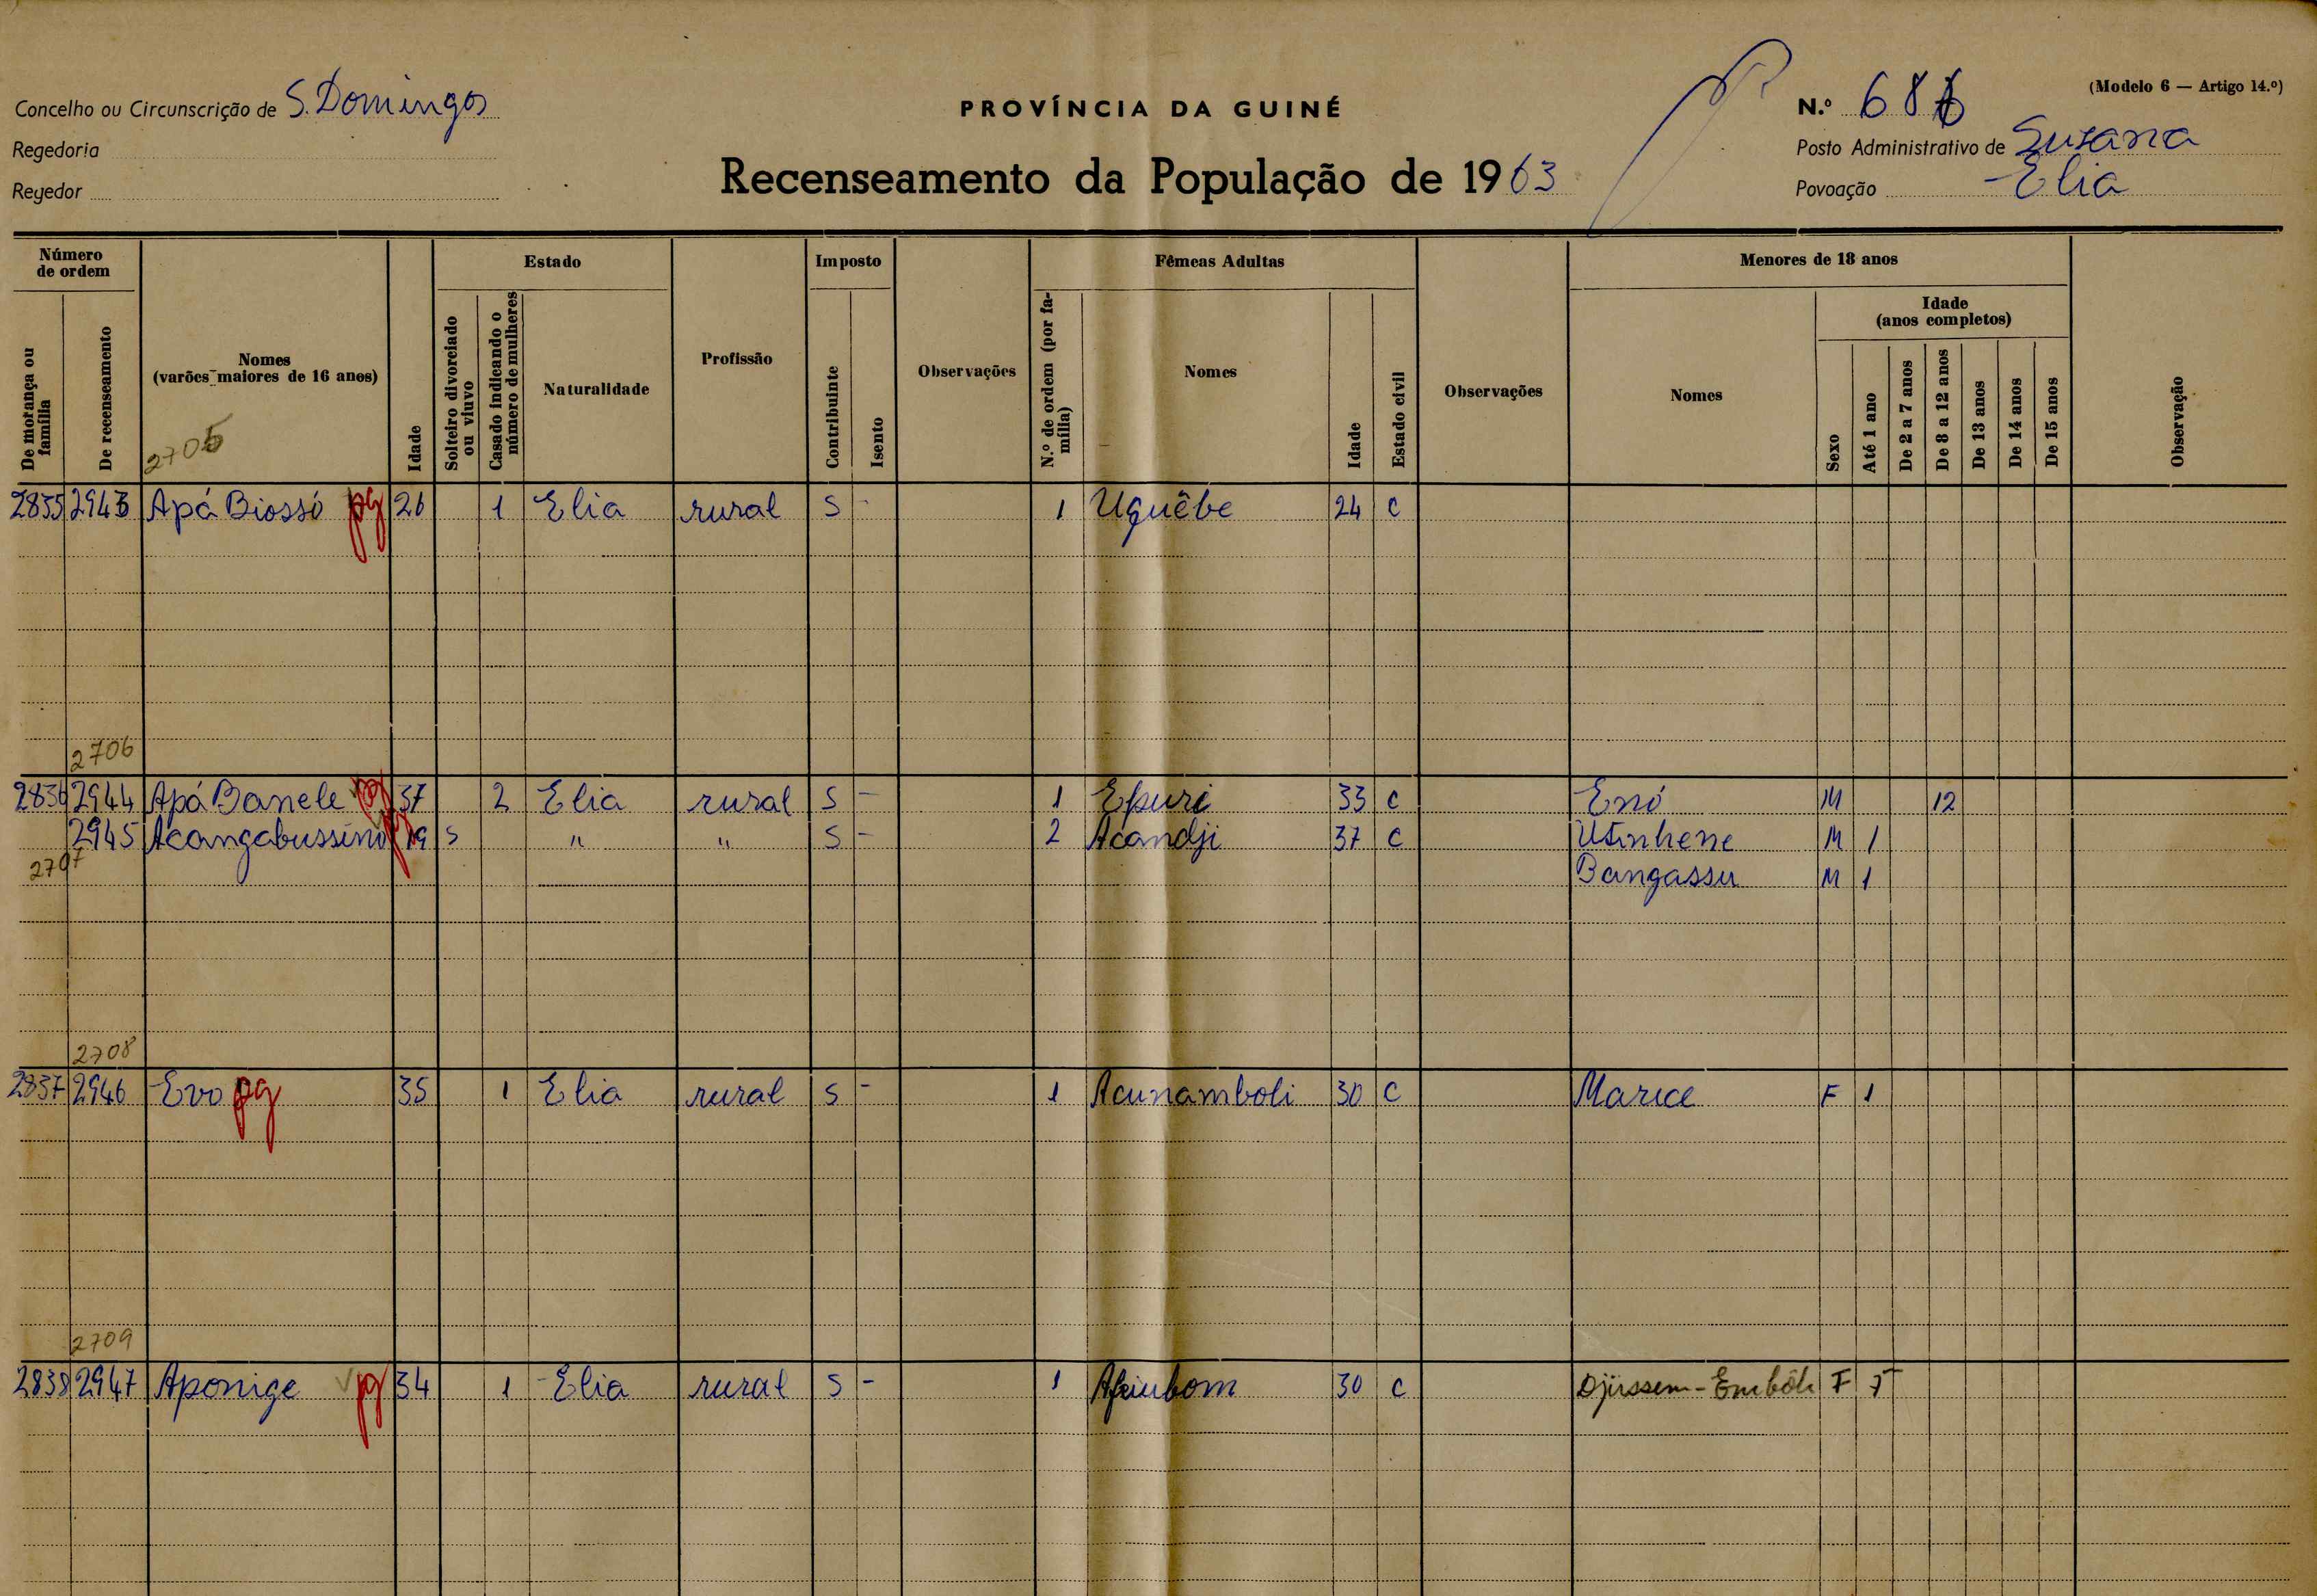 (Modelo 6 — Artigo 14.º)
Concelho ou Circunscrição de S. Domingos
PROVÍNCIA DA GUINÉ
N.º 686
Regedoria
Posto Administrativo de Susana
Regedor
Recenseamento da População de 1963
Povoação Elia
Número de ordem
Estado
Imposto
Fêmeas Adultas
Menores de 18 anos
Idade (anos completos)
De morança ou família
De recenseamento
Nomes (varões maiores de 16 anos)
Idade
Solteiro divorciado ou viuvo
Casado indicando o número de mulheres
Naturalidade
Profissão
Contribuinte
Isento
Observações
N.º de ordem (por família)
Nomes
Idade
Estado civil
Observações
Nomes
Sexo
Até 1 ano
De 2 a 7 anos
De 8 a 12 anos
De 13 anos
De 14 anos
De 15 anos
Observação
2705
2835 2943 Apá Biossó pg 26 1 Elia rural S - 1 Uquêbe 24 C
2706
2836 2944 Apá Banele pg 37 2 Elia rural S - 1 Epuri 33 C Enó M 12
2945 Acangabussino pg 19 S " " S - 2 Acandji 37 C Utinhene M 1
2707
Bangassu M 1
2708
2837 2946 Evo pg 35 1 Elia rural S - 1 Acunamboli 30 C Marice F 1
2709
2838 2947 Aponige pg 34 1 Elia rural S - 1 30 C Djissem-Embôli F